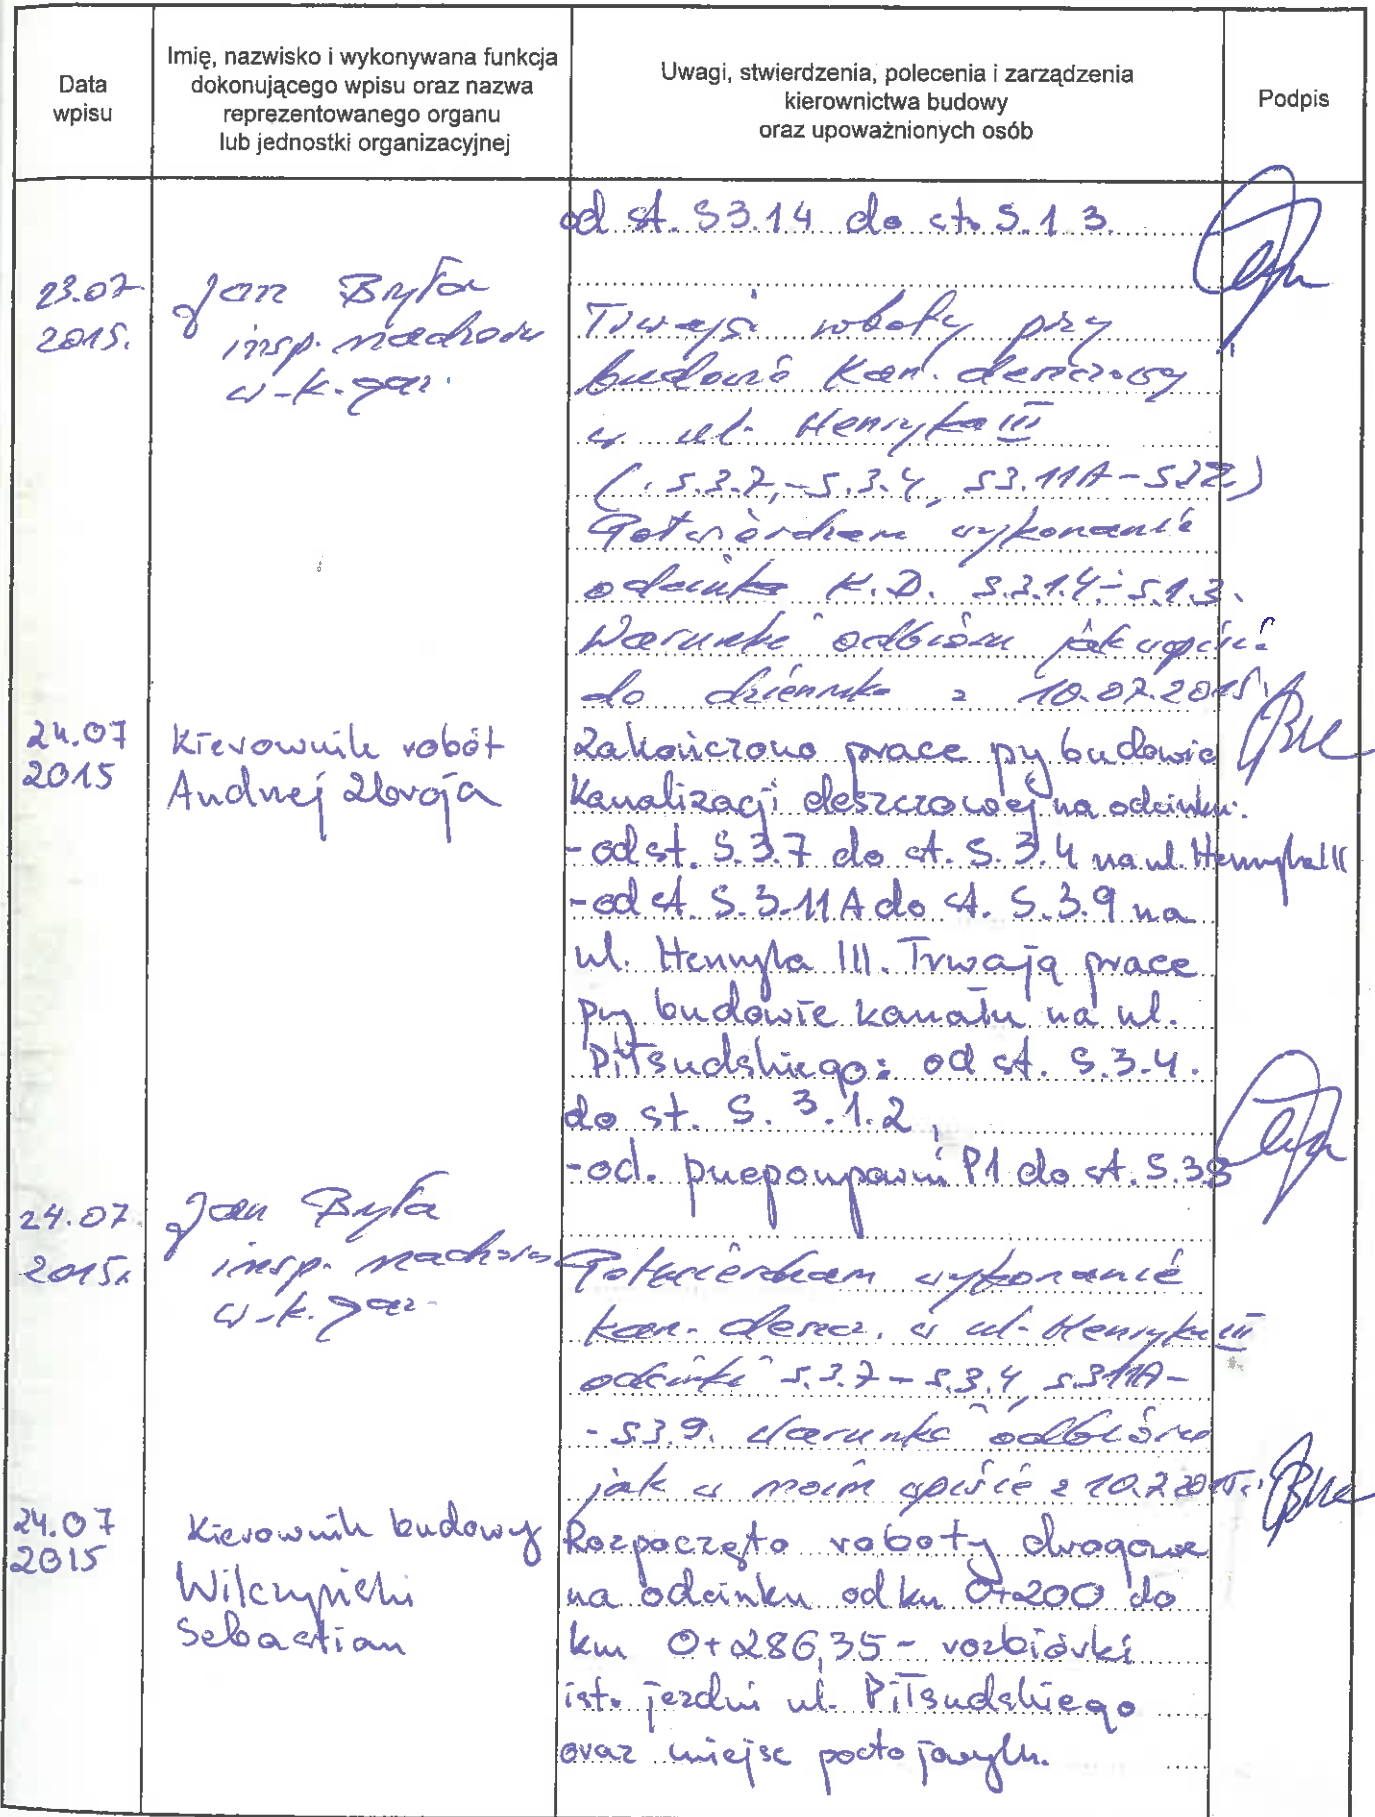 Data
wpisu
Imię, nazwisko i wykonywana funkcja
dokonującego wpisu oraz nazwa
reprezentowanego organu
lub jednostki organizacyjnej
Uwagi, stwierdzenia, polecenia i zarządzenia
kierownictwa budowy
oraz upoważnionych osób
Podpis
od st. S3.14 do st. S.1 3.
23.07
2015.
Jan Była
insp. nadzoru
w-k. gaz.
Trwają roboty przy
budowie kan. deszczowy
w ul. Henryka III
(S.3.7,-S.3.4, S3.11A-
Potwierdzam wykonanie
odcinka K.D. S.3.1.4.-S.1.3.
Warunki odbioru jak wpisie
do dziennika z 10.07.2015r.
24.07
2015
Kierownik robót
Andrzej Zbroja
Zakończono prace przy budowie
Kanalizacji deszczowej na odcinku:
-od st. S.3.7 do st. S.3.4 na ul. Henryka III
-od st. S.3.11A do st. S.3.9 na
ul. Henryka III. Trwają prace
przy budowie kanału na ul.
Piłsudskiego: od st. S.3.4.
do st. S.3.1.2,
-od. przepompowni P1 do st. S.3.8
24.07.
2015r.
Jan Była
insp. nadzoru
w-k. gaz.
Potwierdzam wykonanie
kan. deszcz. w ul. Henryka III
odcinki S.3.7-S.3.4, S.311A-
-S3.9. Warunki odbioru
jak w moim wpisie z 10.7.2015r.
24.07
2015
Kierownik budowy
Wilczyński
Sebastian
Rozpoczęto roboty drogowe
na odcinku od km 0+200 do
km 0+286,35 - rozbiórki
ist. jezdni ul. Piłsudskiego
oraz miejsc postojowych.